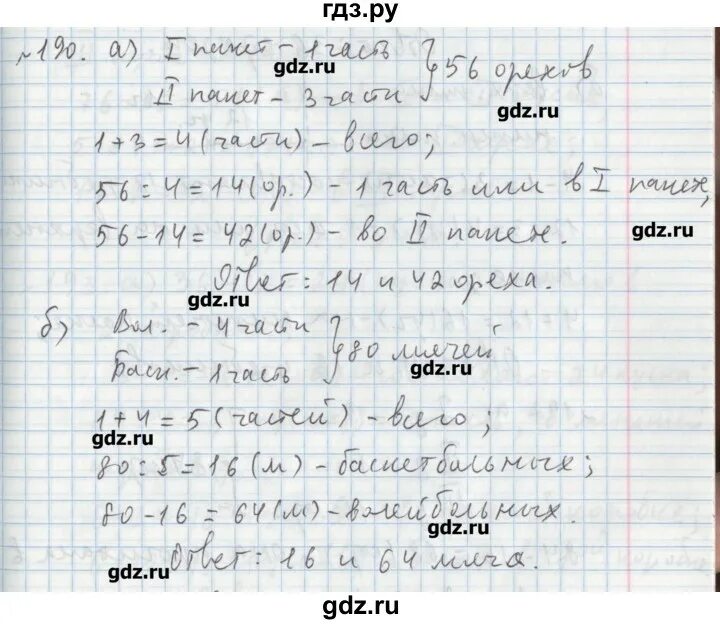 гдз.ру
№190. а) I пакет - 1 часть } 56 орехов
gdz.ru
II пакет - 3 части
gdz.ru
1+3=4 (части) - всего;
56:4=14(ор.) - 1 часть или в I пакет,
56-14=42(ор.) - во II пакет.
gdz.ru
Ответ: 14 и 42 ореха.
gdz.ru
б) Вол. - 4 части } 80 мячей
Баск. - 1 часть
gdz.ru
1+4=5 (частей) - всего;
gdz.ru
80:5=16 (м) - баскетбольных;
80-16=64(м) - волейбольных.
gdz.ru
Ответ: 16 и 64 мяча.
gdz.ru
gdz.ru